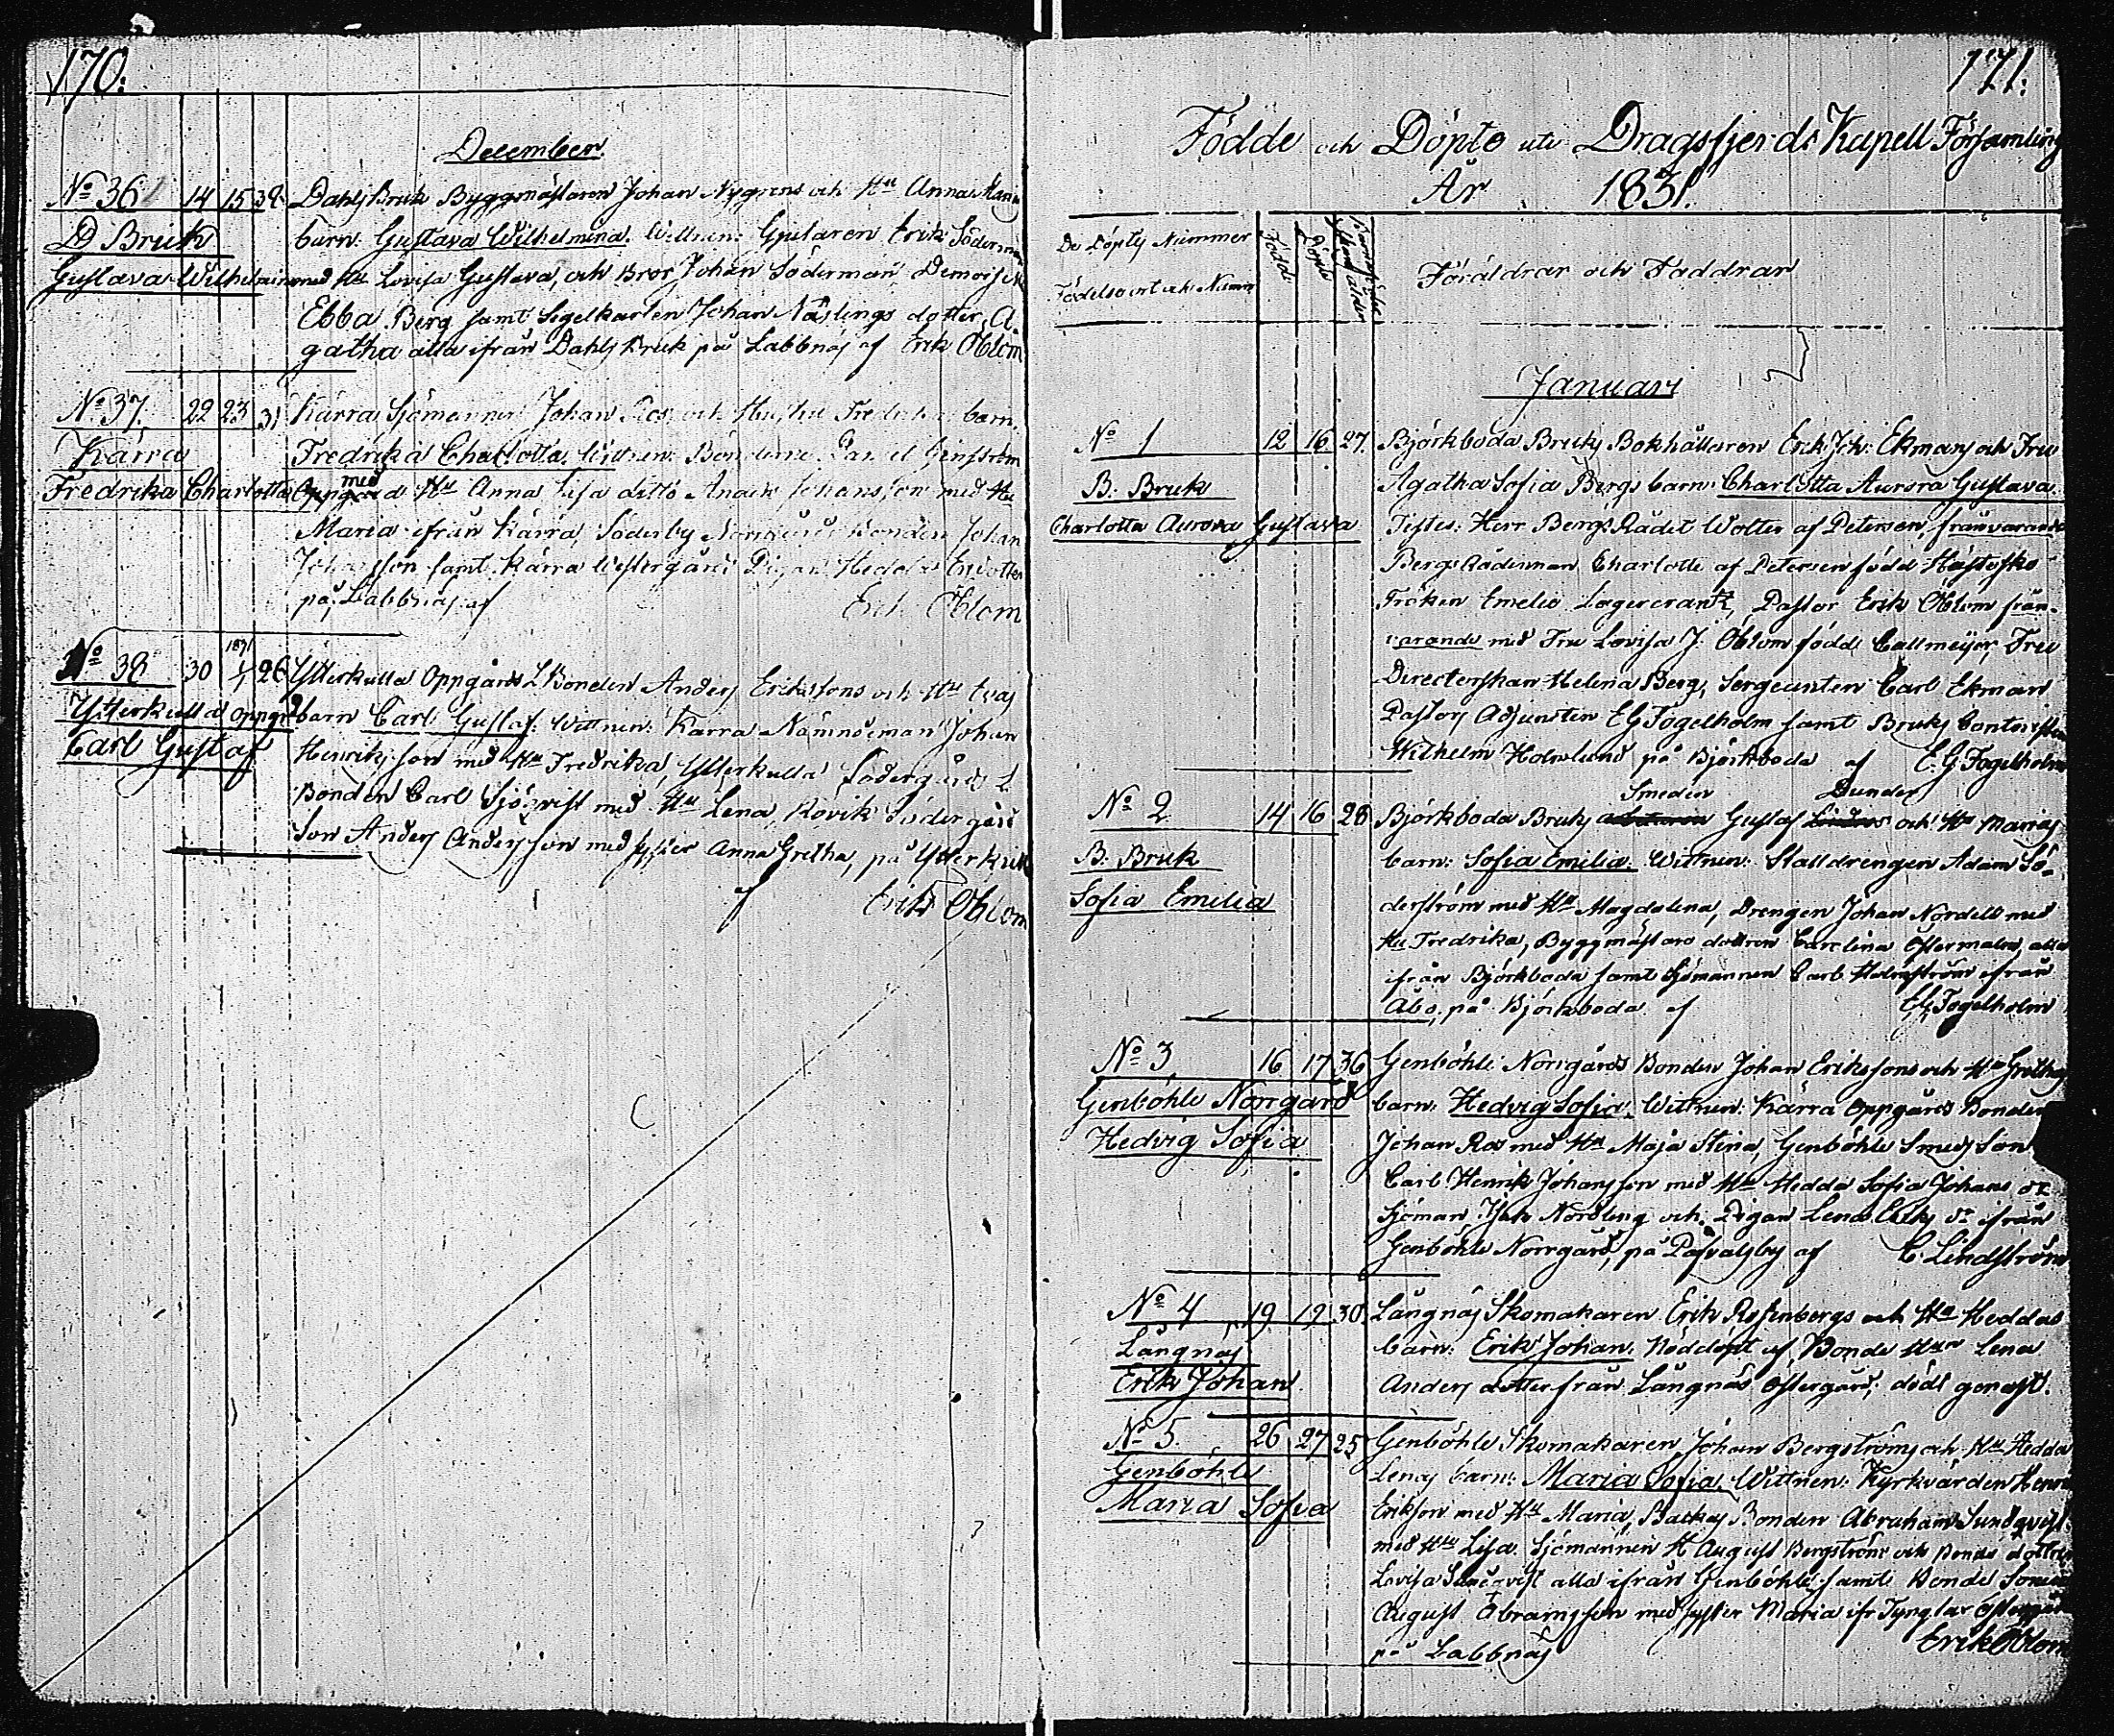 170.
December
No 36 14 15 38 Dahls Bruk Byggmästaren Johan Nygrens och Hu Anna Maria
D Bruk barn: Gustava Wilhelmina. Wittnen: Gjutaren Erik Söderman
Gustava Wilhelmina med Hu Lovisa Gustava, och Bror Johan Söderman Demoiselle
Ebba Berg samt Segelkarlen Johan Näslings dotter A-
gatha alla ifrån Dahls Bruk på Labbnäs af Erik Öblom
No 37. 22 23 31 Kärra Sjömannen Johan Ros och Hustru Fredrikas barn.
Kärra Fredrika Charlotta. Wittnen: Bönderne
Fredrika Charlotta Oppgård med Hu Anna Lisa ditto Anders Johansson med Hu
Maria ifrån Kärra, Söderby Norrgårds Bonden Johan
Johansson samt Kärra Westergårds Pigan Hedda
på Labbnäs af Erik Öblom
No 38 30 1831 1/1 26 Ytterkulla Oppgårds L Bonden Anders Erikssons och Hu Evas
Ytterkulla Oppgrd barn Carl Gustaf. Wittnen: Kärra Nämndeman Johan
Carl Gustaf Henriksson med Hu Fredrika, Ytterkulla Södergårds L
Bonden Carl Sjöqvist med Hu Lena, Rövik Södergård
Son Anders Andersson med syster Anna Gretha, på Ytterkulla
af Erik Öblom
171.
Födde och Döpte uti Dragsfjerds Kapell Församling
År 1831.
De Döptes Nummer
Födelseort och Namn
Födde
Döpte
Barnaföderskans ålder
Föräldrar och Faddrar
Januari
No 1 12 16 27. Björkboda Bruks Bokhållaren Erik Joh: Ekmans och Fru
B: Bruk Agatha Sofia Bergs barn: Charlotta Aurora Gustava.
Charlotta Aurora Gustava Testes: Herr BergsRådet Wolter af Petersen, frånvarande
BergsRådinnan Charlotte af Petersen född Hästesko
Fröken Emelie Lagercrantz, Pastor Erik Öblom från-
varande med Fru Lovisa J. Öblom född Callmeijer, Fru
Directerskan Helena Berg, Sergeanten Carl Ekman
Pastors Adjuncten E G Fogelholm samt Bruks Contoristen
Wilhelm Holmlund på Björkboda af E. G. Fogelholm
Smeden Dunder
No 2 14 16 28 Björkboda Bruks Gustaf och Hu Marias
B: Bruk barn: Sofia Emilia. Wittnen: Stalldrengen Adam Sö-
Sofia Emilia derström med Hu Magdalena, Drengen Johan Nordell med
Hu Fredrika, Byggmästare dottren Carolina Östermalm, alla
ifrån Björkboda samt Sjömannen Carl Holmström ifrån
Åbo, på Björkboda af EG Fogelholm
No 3 16 17 36 Genböhle Norrgårds Bonden Johan Erikssons och Hu Grethas
Genböhle Norrgård barn: Hedvig Sofia. Wittnen: Kärra Oppgårds Bonden
Hedvig Sofia Johan Ros med Hu Maja Stina, Genböhle Smeds Son
Carl Henrik Johansson med Hu Hedda Sofia Johans dr
Sjöman Isak Nordling och Pigan Lena Eriks dr ifrån
Genböhle Norrgård, på Påfvalsby af C. Lindström
No 4 19 19 30 Långnäs Skomakaren Erik Rosenbergs och Hu Heddas
Långnäs barn: Erik Johan. Nöddöpt af Bonde Hun Lena
Erik Johan Anders dotter från Långnäs Östergård; dödt genast.
No 5. 26 27 25 Genböhle Skomakaren Johan Bergströms och Hu Hedda
Genböhle Lenas barn: Maria Sofia. Wittnen: Kyrkvärden Henrik
Maria Sofia Eriksson med Hu Maria, Backas Bonden Abraham Sundqvist
med Hu Lisa Sjömannen H August Bergström och Bonde dottren
Lovisa Sundqvist alla ifrån Genböhle samt Bonde Sonen
August Abramsson med syster Maria ifr Tynglax Östergård
på Labbnäs Erik Öblom